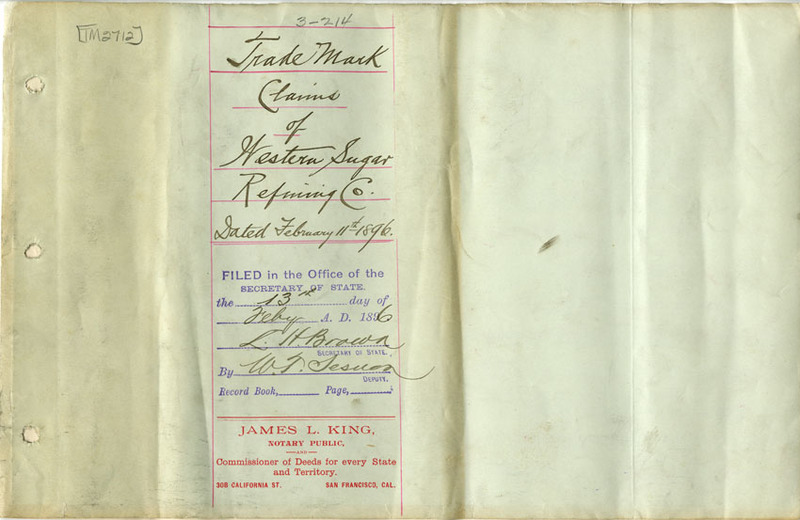 [TM2712]
3-214
Trade Mark
Claims
of
Western Sugar
Refining Co.
Dated February 11th 1896.
FILED in the Office of the
SECRETARY OF STATE.
the 13th day of
Feby A. D. 1896
L. H. Brown
SECRETARY OF STATE.
By W. T. Sesnon
DEPUTY.
Record Book, Page,
JAMES L. KING,
NOTARY PUBLIC,
—AND—
Commissioner of Deeds for every State
and Territory.
308 CALIFORNIA ST. SAN FRANCISCO, CAL.